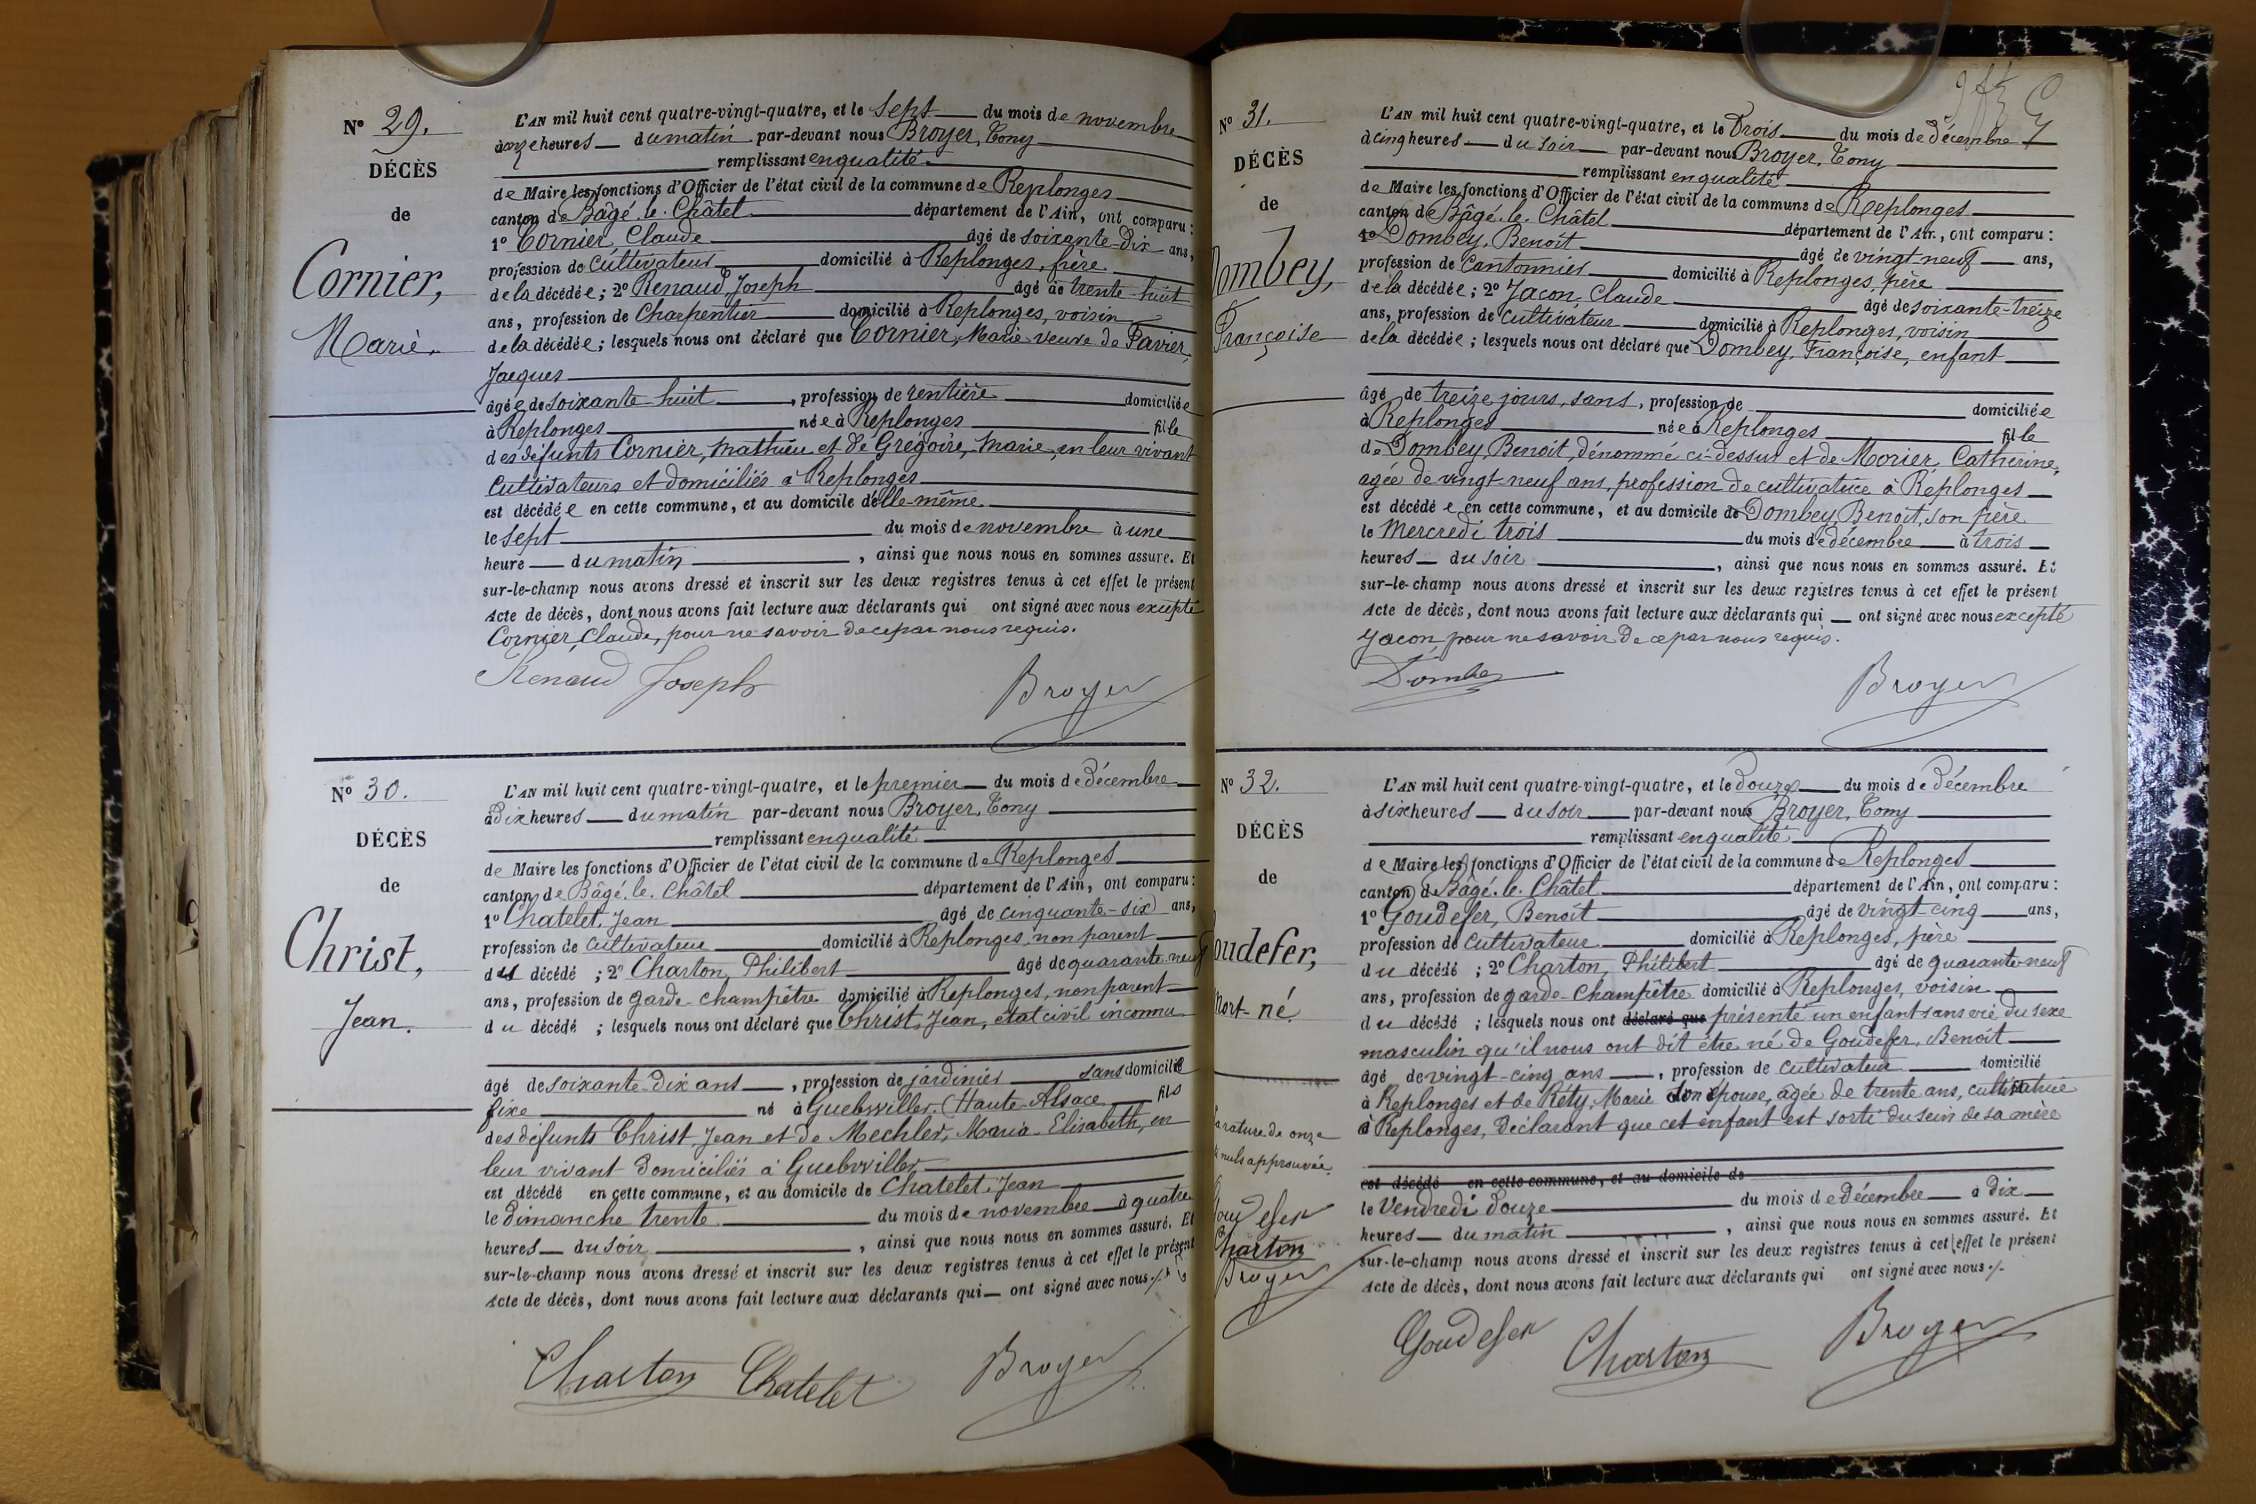 Nº 29.
DÉCÈS
de
Cornier,
Marie.
L'AN mil huit cent quatre-vingt-quatre, et le sept du mois de novembre
à onze heures du matin par-devant nous Broyer, Tony
remplissant en qualité
de Maire les fonctions d'Officier de l'état civil de la commune de Replonges
canton de Bâgé-le-Châtel département de l'Ain, ont comparu :
1º Cornier, Claude âgé de soixante-dix ans,
profession de cultivateur domicilié à Replonges, frère
de la décédée ; 2º Renaud Joseph âgé de trente-huit
ans, profession de Charpentier domicilié à Replonges, voisin
de la décédée ; lesquels nous ont déclaré que Cornier, Marie veuve de Pavier,
Jacques
âgée de soixante-huit, profession de rentière domiciliée
à Replonges née à Replonges fille
des défunts Cornier, Mathieu et de Gregoire, Marie, en leur vivant
cultivateurs et domiciliés à Replonges
est décédée en cette commune, et au domicile d'elle-même
le sept du mois de novembre à une
heure du matin, ainsi que nous nous en sommes assuré. Et
sur-le-champ nous avons dressé et inscrit sur les deux registres tenus à cet effet le présent
Acte de décès, dont nous avons fait lecture aux déclarants qui ont signé avec nous excepté
Cornier, Claude, pour ne savoir de ce par nous requis.
Renaud Joseph Broyer
Nº 30.
DÉCÈS
de
Christ,
Jean.
L'AN mil huit cent quatre-vingt-quatre, et le premier du mois de décembre
à dix heures du matin par-devant nous Broyer, Tony
remplissant en qualité
de Maire les fonctions d'Officier de l'état civil de la commune de Replonges
canton de Bâgé-le-Châtel département de l'Ain, ont comparu :
1º Chatelet, Jean âgé de cinquante-six ans,
profession de cultivateur domicilié à Replonges, non parent
du décédé ; 2º Charton, Philibert âgé de quarante-neuf
ans, profession de garde-champêtre domicilié à Replonges, non parent
du décédé ; lesquels nous ont déclaré que Christ, Jean, état civil inconnu
âgé de soixante-dix ans, profession de jardinier sans domicilié
fixe né à Guebwiller (Haute Alsace fils
des défunts Christ, Jean et de Mechler, Maria Elisabeth, en
leur vivant domiciliés à Guebwiller
est décédé en cette commune, et au domicile de Chatelet, Jean
le dimanche trente du mois de novembre à quatre
heures du soir, ainsi que nous nous en sommes assuré. Et
sur-le-champ nous avons dressé et inscrit sur les deux registres tenus à cet effet le présent
Acte de décès, dont nous avons fait lecture aux déclarants qui ont signé avec nous
Charton Chatelet Broyer
Nº 31.
DÉCÈS
de
Dombey,
Françoise
L'AN mil huit cent quatre-vingt-quatre, et le trois du mois de décembre
à cinq heures du soir par-devant nous Broyer, Tony
remplissant en qualité
de Maire les fonctions d'Officier de l'état civil de la commune de Replonges
canton de Bâgé-le-Châtel département de l'Ain, ont comparu :
1º Dombey, Benoit âgé de vingt neuf ans,
profession de Cantonnier domicilié à Replonges, père
de la décédée ; 2º Jacon, Claude âgé de soixante-treize
ans, profession de cultivateur domicilié à Replonges, voisin
de la décédée ; lesquels nous ont déclaré que Dombey, Françoise, enfant
âgé de treize jours, sans, profession de domiciliée
à Replonges née à Replonges fille
de Dombey Benoit, dénommé ci-dessus et de Morier, Catherine,
agée de vingt-neuf ans, profession de cultivatrice à Replonges
est décédée en cette commune, et au domicile de Dombey Benoit, son père
le Mercredi trois du mois de décembre à trois
heures du soir, ainsi que nous nous en sommes assuré. Et
sur-le-champ nous avons dressé et inscrit sur les deux registres tenus à cet effet le présent
Acte de décès, dont nous avons fait lecture aux déclarants qui ont signé avec nous excepté
Jacon, pour ne savoir de ce par nous requis.
Dombey Broyer
Nº 32.
DÉCÈS
de
Goudefer,
Mort-né.
L'AN mil huit cent quatre-vingt-quatre, et le douze du mois de décembre
à six heures du soir par-devant nous Broyer, Tony
remplissant en qualité
de Maire les fonctions d'Officier de l'état civil de la commune de Replonges
canton de Bâgé-le-Châtel département de l'Ain, ont comparu :
1º Goudefer, Benoit âgé de vingt-cinq ans,
profession de cultivateur domicilié à Replonges, père
du décédé ; 2º Charton, Philibert âgé de quarante-neuf
ans, profession de garde-champêtre domicilié à Replonges, voisin
du décédé ; lesquels nous ont déclaré que présenté un enfant sans vie du sexe
masculin qu'il nous ont dit être né de Goudefer, Benoit
âgé de vingt-cinq ans, profession de cultivateur domicilié
à Replonges et de Réty, Marie son épouse, agée de trente ans, cultivatrice
à Replonges, déclarant que cet enfant est sorti du sein de sa mère
est décédé en cette commune, et au domicile de
le Vendredi douze du mois de décembre à dix
heures du matin, ainsi que nous nous en sommes assuré. Et
sur-le-champ nous avons dressé et inscrit sur les deux registres tenus à cet effet le présent
Acte de décès, dont nous avons fait lecture aux déclarants qui ont signé avec nous
rature de onze
nuls approuvée.
Goudefer
Charton
Broyer
Goudefer Charton Broyer